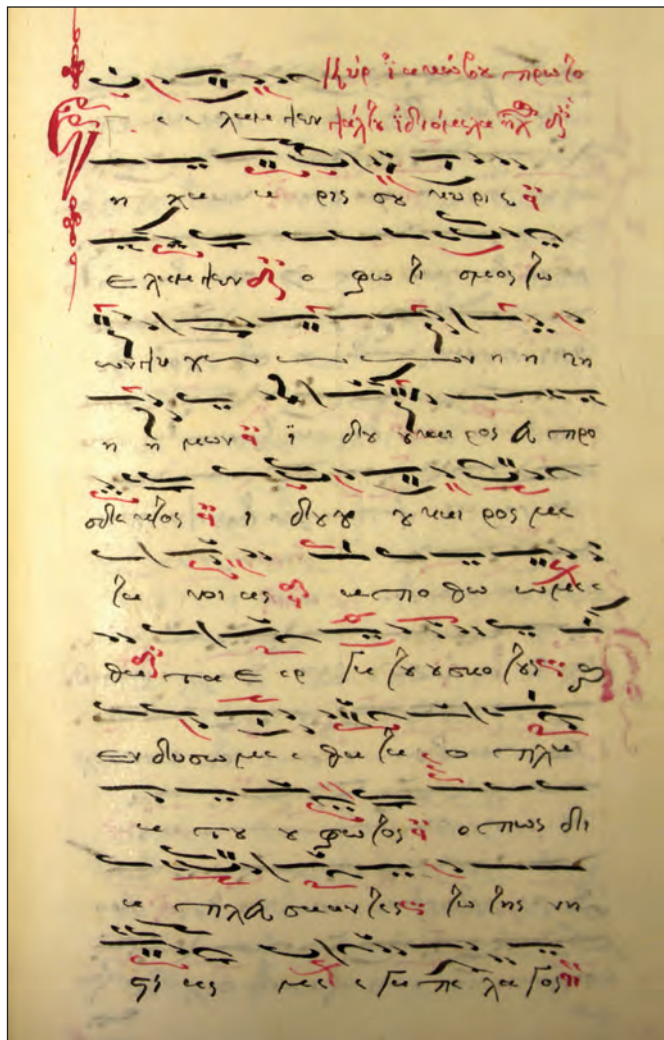 Κύρ ϊακώβου πρωτο
Ε λαμψεν ψάλτου ϊδιόμελα ἦχ
η χα α ρις σου κυριε
ε λαμψεν ο φω τι σμος τω
ων ψυ χω ων η η
η η μων ϊ δου καιρος ευ προ
σδεκτος ι δου ου καιρος με
τα νοι ας α πο θω ωμε ε
θα τα ε ερ γα του ου σκο τους ϗ
εν δυσωμε ε θα τα α ο πλα
α του ου φωτος ο πως δι
α πλευ σαν τες το της νη
στει ας με ε γα πε λα γος